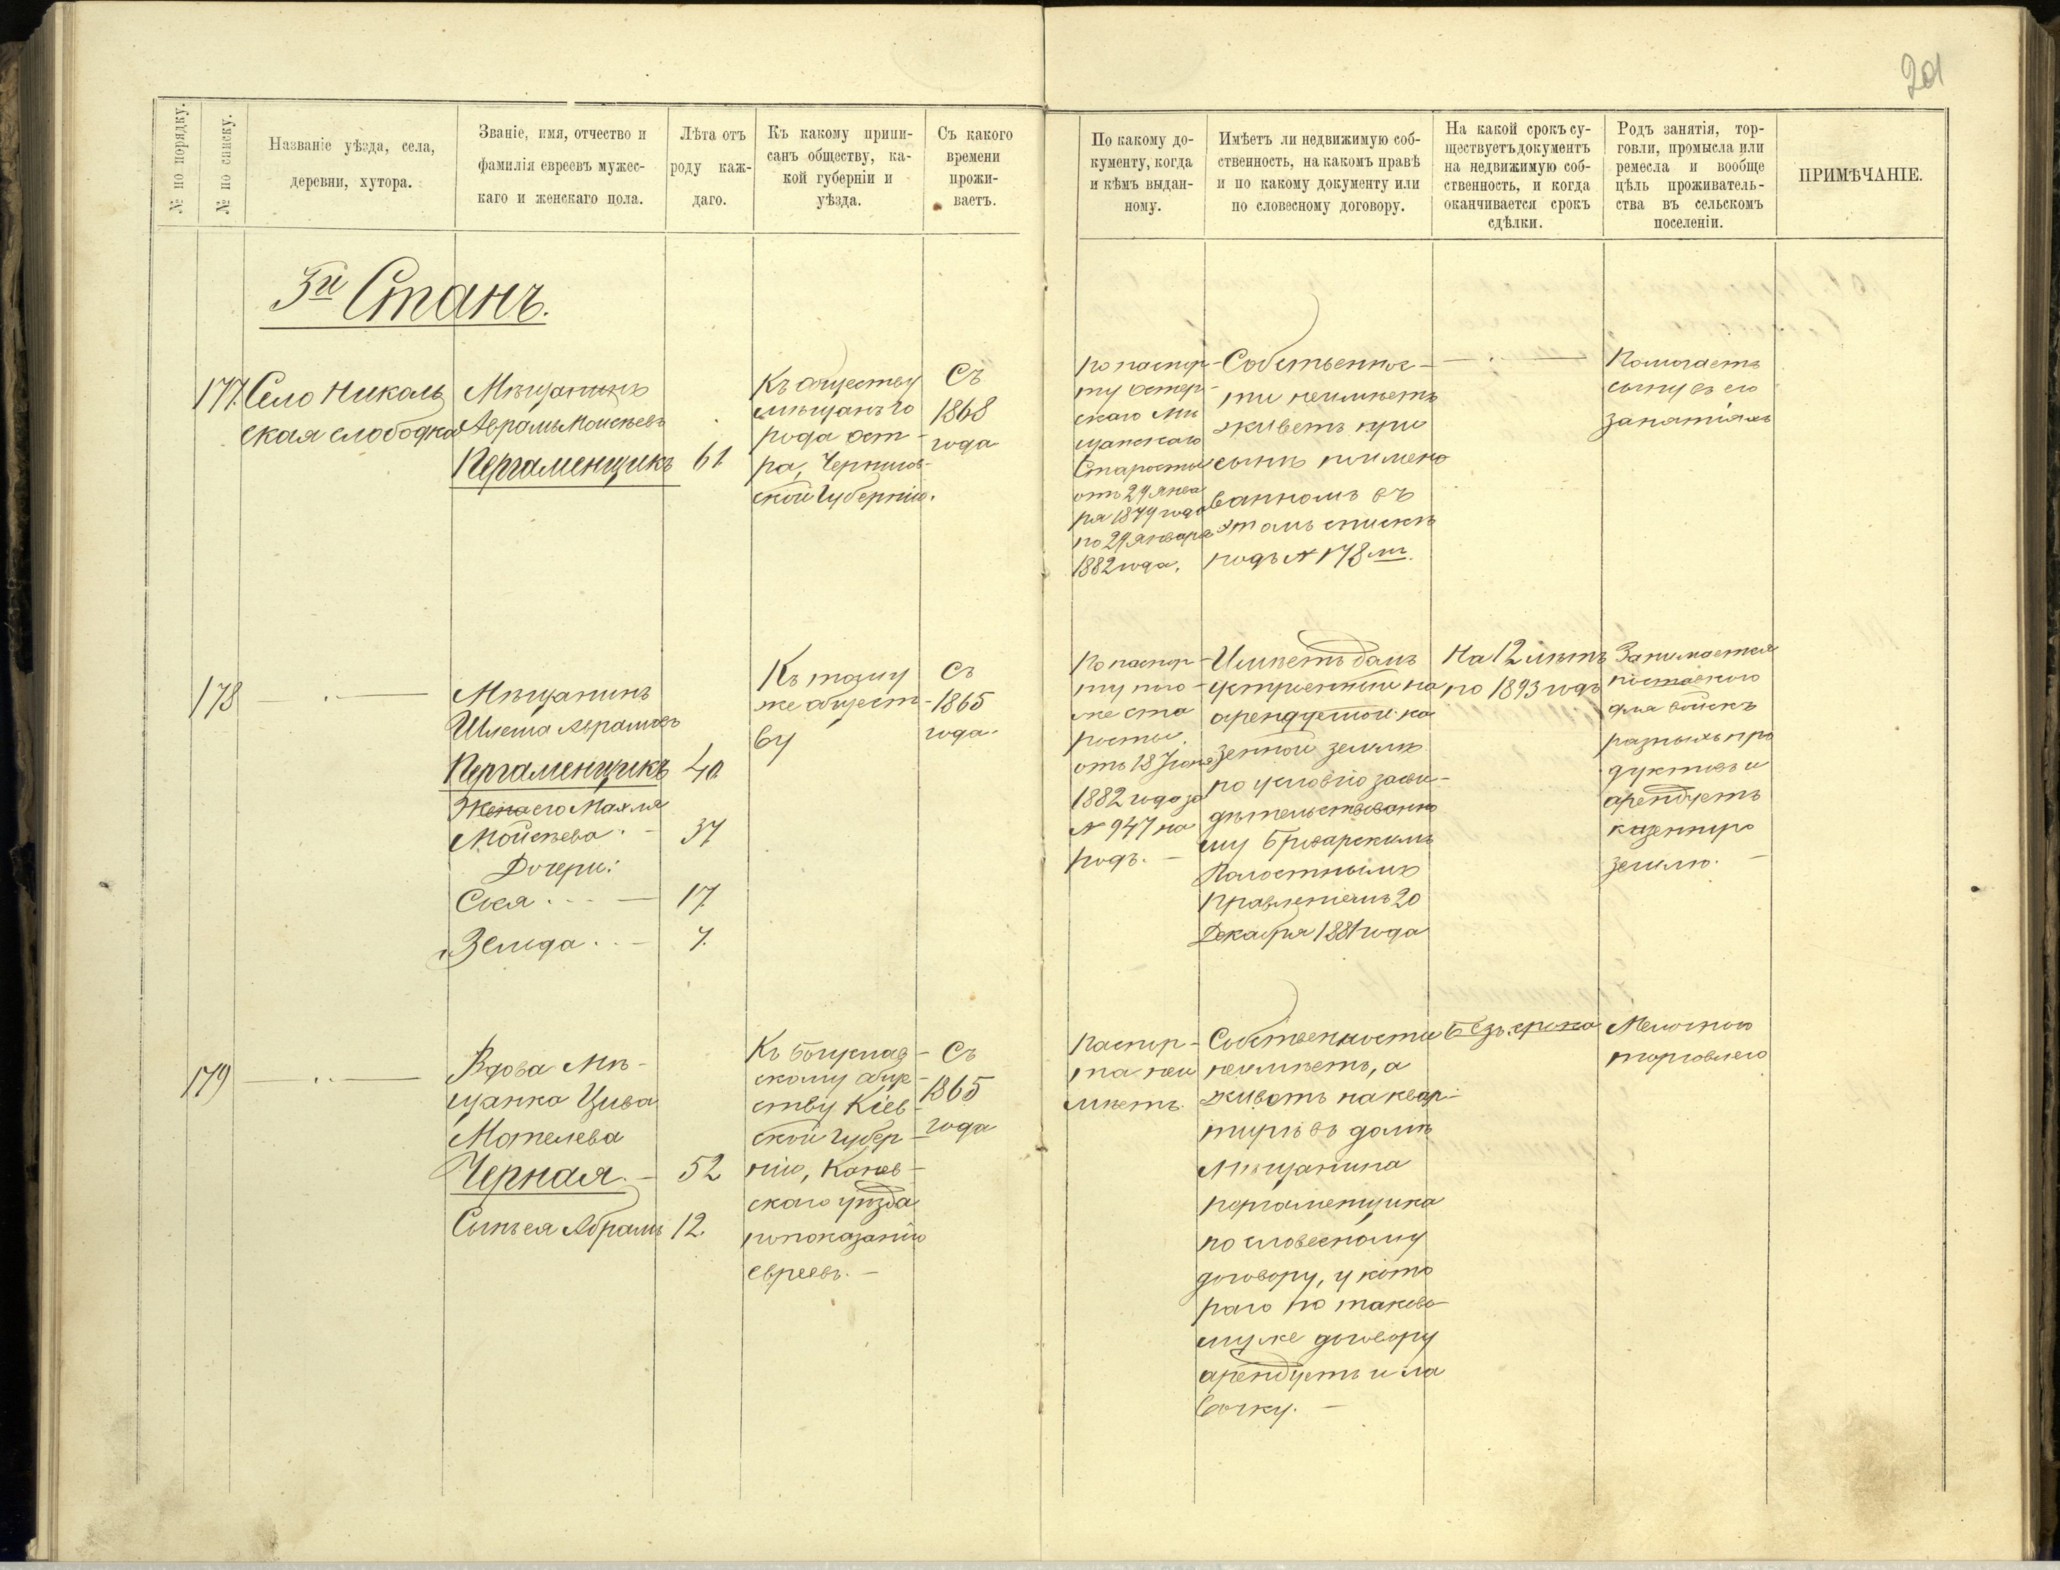 201
№ по порядку.
№ по списку.
Названіе уѣзда, села,
деревни, хутора.
Званіе, имя, отчество и
фамилія евреевъ мужес-
каго и женскаго пола.
Лѣта отъ
роду каж-
даго.
Къ какому припи-
санъ обществу, ка-
кой губерніи и
уѣзда.
Съ какого
времени
прожи-
ваетъ.
По какому до-
кументу, когда
и кѣмъ выдан-
ному.
Имѣетъ ли недвижимую соб-
ственность, на какомъ правѣ
и по какому документу или
по словесному договору.
На какой срокъ су-
ществуетъ документъ
на недвижимую соб-
ственность, и когда
оканчивается срокъ
сдѣлки.
Родъ занятія, тор-
говли, промысла или
ремесла и вообще
цѣль проживатель-
ства въ сельскомъ
поселеніи.
ПРИМѢЧАНІЕ.
3й Станъ.
177.
Село Николь
ская слободка
Мѣщанинъ
Аврамъ Моисѣевъ
Пергаменщикъ
61
Къ обществу
мѣщанъ го
рода Ост-
ра, Чернигов-
ской Губерніи.
Съ
1868
года
По паспор-
ту Остер-
скаго Мѣ
щанскаго
Старосты
отъ 29 Янва
ря 1879 года
по 29 Января
1882 года.
Собственнос-
ти неимѣетъ
живетъ при
сынѣ поимено
ванномъ въ
этомъ спискѣ
подъ № 178 мъ.
Помогаетъ
сыну въ его
занятіяхъ
178
Мѣщанинъ
Шлема Аврамовъ
Пергаменщикъ
40
Жена его Махля
Мойсѣева
37
Дочери:
Сося
17
Зелда
7.
Къ тому
же общест-
ву
Съ
1865
года.
По паспор-
ту того-
же ста
росты
отъ 18 Іюня
1882 года за
№ 947 на
годъ.
Имѣетъ домъ
устроенный на
арендуемой ка
зенной землѣ
по условію засви-
дѣтельствованно
му Броварскимъ
Волостнымъ
Правленіемъ 20
Декабря 1881 года
На 12 лѣтъ
по 1893 годъ
Занимается
поставкою
для войскъ
разныхъ про
дуктовъ и
арендуетъ
казенную
землю.
179
Вдова Мѣ-
щанка Цива
Мотелева
Черная
52
Сынъ ея Абрамъ
12.
Къ Богуслав-
скому обще-
ству Кіев-
ской Губер-
ніи, Канев-
скаго уѣзда
по показанію
евреевъ.
Съ
1865
года
Паспор-
та неи
мѣетъ.
Собственности
неимѣетъ, а
живетъ на квар-
тирѣ въ домѣ
Мѣщанина
Пергаменщика
по словесному
договору, у кото
раго по таково-
му же договору
арендуетъ и ла
вочку.
Безъ срока
Мелочною
торговлею